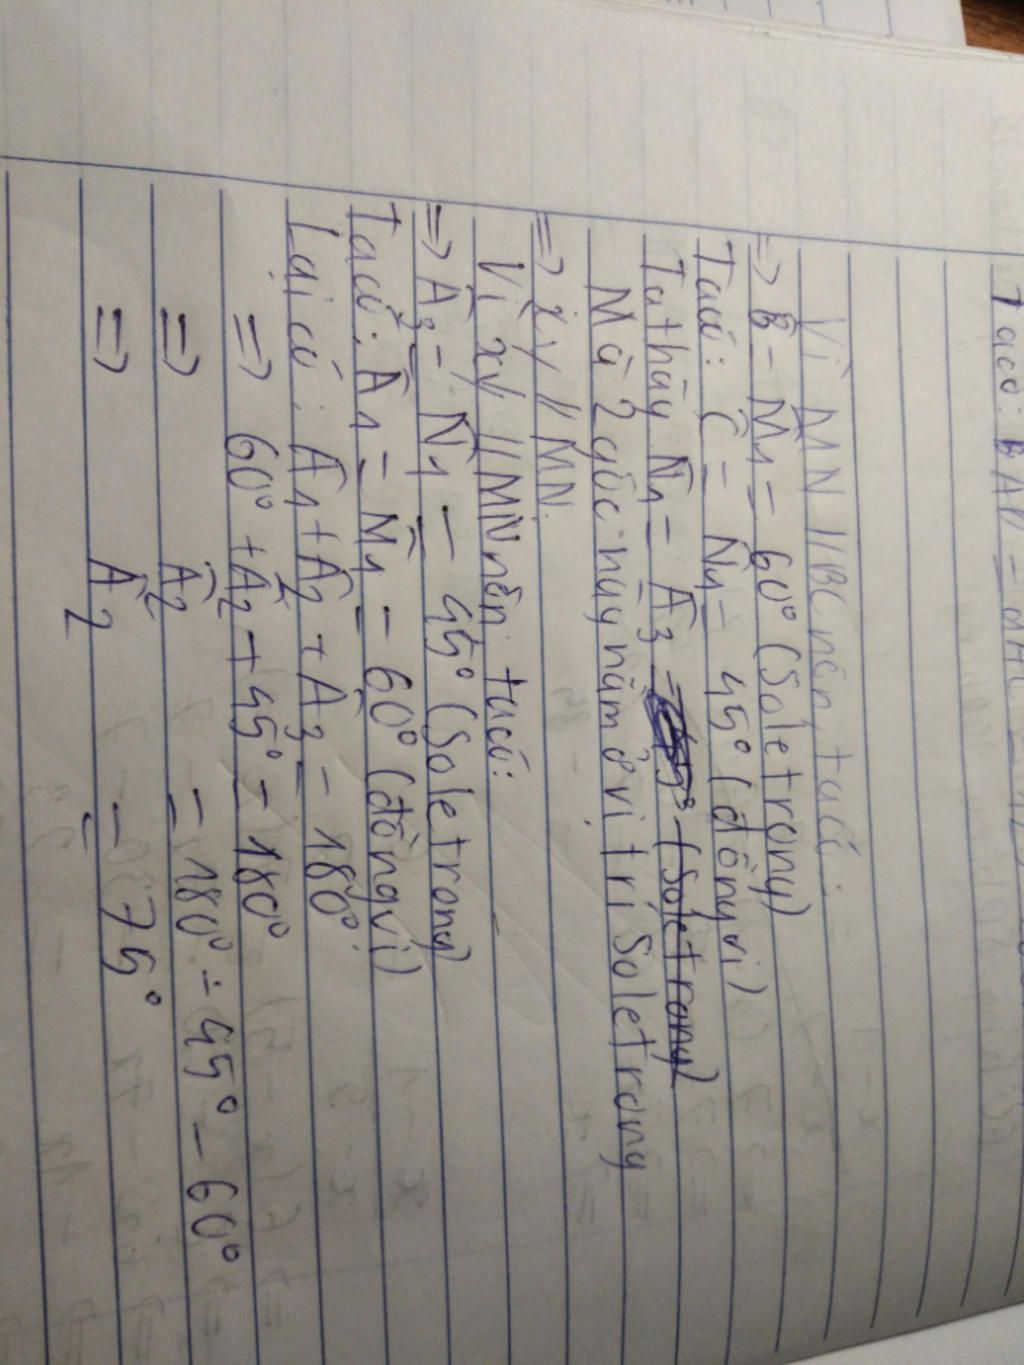 Ta có: BAD = dAC =
Vì MN // BC nên, ta có:
=> B̂ = M̂1 = 60° (Sole trong)
Ta có: Ĉ = N̂1 = 45° (đồng vị)
Ta thấy N̂1 = Â3 = (Sole trong)
Mà 2 góc này nằm ở vị trí Sole trong
=> xy // MN.
Vì xy // MN nên, ta có:
=> Â3 = N̂1 = 45° (Sole trong)
Ta có: Â1 = M̂1 = 60° (đồng vị)
Lại có: Â1 + Â2 + Â3 = 180°
=> 60° + Â2 + 45° = 180°
=> Â2 = 180° - 45° - 60°
=> Â2 = 75°